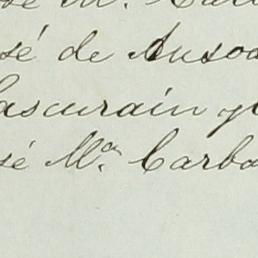 sé de Ansoa
ascurain y
sé Mª. Carba